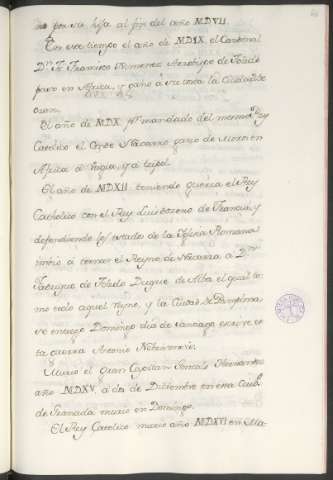 por su hija al fin del año MDVII.
En este tiempo el año de MDIX. el Cardenal
Dn. Fr. Francisco Ximenez Arzobispo de Toledo
paso en Africa, y ganó a su costa la Ciudad de
Oran.
El año de MDX. por mandado del mismo Rey
Catolico el Conde Navarro gano de Moros en
Africa á Bugia, y á Tripol.
El año de MDXII. teniendo guerra el Rey
Catholico con el Rey Luis de Francia, y
defendiendo los estados de la Yglesia Romana
imbió á tomar el Reyno de Navarra a Dn.
Fadrique de Toledo Duque de Alba el qual to-
mo todo aquel Reyno, y la Ciudad de Pamplona,
se entregó Domingo dia de Santiago escrive es-
ta guerra Antonio Nebrixense.
Murio el gran Capitan Gonzalo Hernandez
año MDXV. á dos de Diciembre en essa Ciud.
de Granada murio en Domingo.
El Rey Catolico murio año MDXVI en Ma-